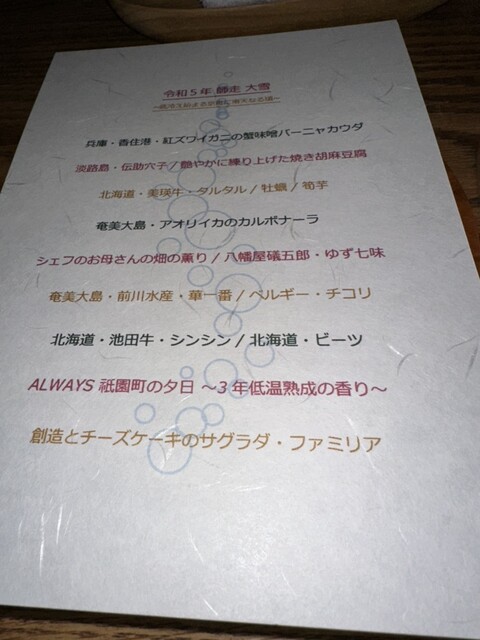 令和5年 師走 大雪
兵庫・香住港・紅ズワイガニの蟹味噌バーニャカウダ
淡路島・伝助穴子 / 艶やかに練り上げた焼き胡麻豆腐
北海道・美瑛牛・タルタル / 牡蠣 / 筍芋
奄美大島・アオリイカのカルボナーラ
シェフのお母さんの畑の薫り / 八幡屋礒五郎・ゆず七味
奄美大島・前川水産・華一番 / ベルギー・チコリ
北海道・池田牛・シンシン / 北海道・ビーツ
ALWAYS 祇園町の夕日 ～3年低温熟成の香り～
創造とチーズケーキのサグラダ・ファミリア